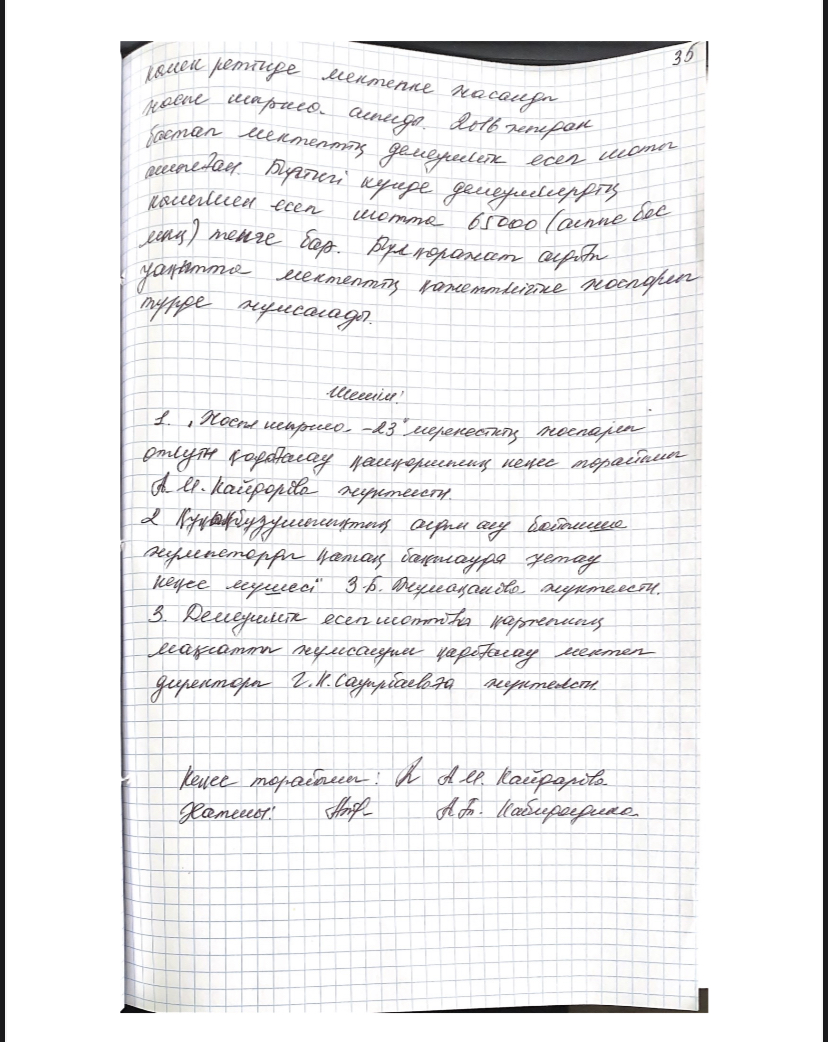 35
көмек ретінде мектепке жасанды
шырша алынды. 2016 жылдан
бастап мектептің демеушілік есеп шоты
ашылған. Бүгінгі күнде демеушілердің
көмегімен есеп шотта 65000 (алпыс бес
мың) теңге бар. Бұл қаражат алдағы
уақытта мектептің қажеттілігіне жоспарлы
түрде жұмсалады.
Шешім:
1. шырша -23" мерекесінің жоспарлы
өтілуін қадағалау қамқоршылық кеңес төрайымы
А.М. Кайдарова жүктелсін.
2 алдын алу бойынша
жұмыстарды қатаң бақылауда ұстау
кеңес мүшесі З.Б. жүктелсін.
3. Демеушілік есеп шоттағы қаржының
мақсатты жұмсалуын қадағалау мектеп
директоры Г.К. Сауырбаеваға жүктелсін.
Кеңес төрайымы: А.М. Кайдарова
Хатшы: